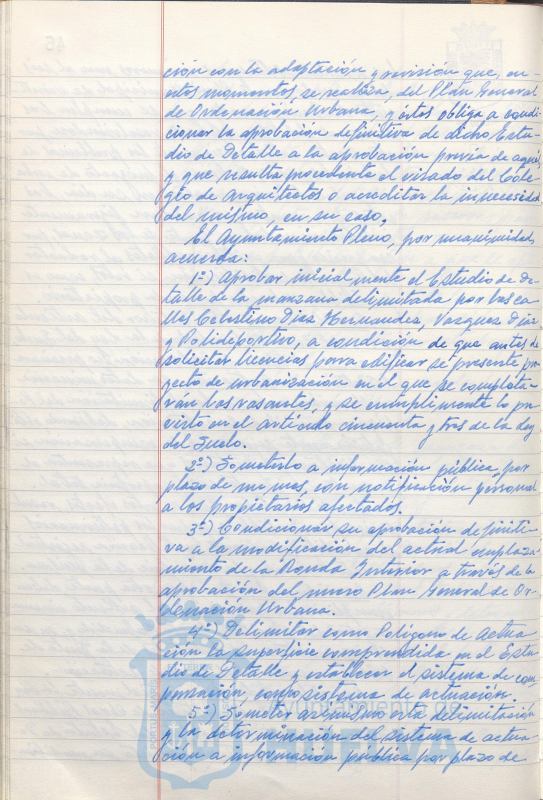 ción con la adaptación y revisión que, en
estos momentos, se realiza, del Plan General
de Ordenación Urbana, y éstos obliga a condi-
cionar la aprobación definitiva de dicho Estu-
dio de Detalle a la aprobación previa de aquel
y que resulta procedente el visado del Cole-
gio de Arquitectos o acreditar la innecesidad
del mismo, en su caso,
El Ayuntamiento Pleno, por unanimidad,
acuerda:
1º) Aprobar inicialmente el Estudio de De-
talle de la manzana delimitada por las ca-
lles Celestino Díaz Hernández, Vázquez Díaz
y Polideportivo, a condición de que antes de
solicitar licencias para edificar se presente pro-
yecto de urbanización en el que se completa-
rán las rasantes, y se cumplimente lo pre-
visto en el artículo cincuenta y tres de la Ley
del Suelo.
2º) Someterlo a información pública, por
plazo de un mes, con notificación personal
a los propietarios afectados.
3º) Condicionar su aprobación definiti-
va a la modificación del actual emplaza-
miento de la Ronda Interior a través de la
aprobación del nuevo Plan General de Or-
denación Urbana.
4º) Delimitar como Polígono de Actua-
ción la superficie comprendida en el Estu-
dio de Detalle y establecer el sistema de com-
pensación, como sistema de actuación.
5º) Someter asimismo esta delimitación
y la determinación del sistema de actua-
ción a información pública por plazo de
Ayuntamiento de
HUELVA